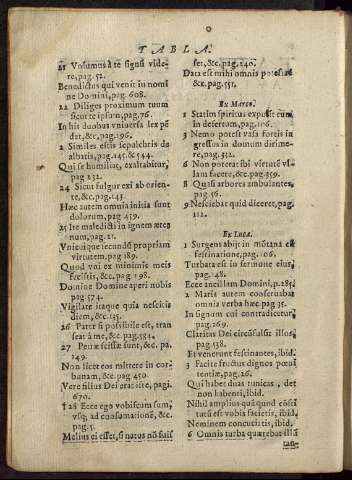 TABLA.
21 Volumus à te signũ vide-
re, pag. 52.
Benedictus qui venit in nomi
ne Domini, pag. 608.
22 Diliges proximum tuum
sicut te ipsum, pag. 76.
In his duobus vniuersa lex pẽ
det, &c, pag. 196.
2 Similes estis sepulchris de
albatis, pag. 145. & 544.
Qui se humiliat, exaltabitur,
pag 232.
24 Sicut fulgur exi ab orien-
te, &c. pag. 143.
Hæc autem omnia initia sunt
dolorum, pag 459.
25 Ite maledicti in ignem æter
num, pag. 21.
Vnicuique secundũ propriam
virtutem, pag 189.
Quod vni ex minimis meis
fecistis, &c. pag. 198.
Domine Domine aperi nobis
pag 574.
Vigilate itaque quia nescitis
diem, &c. 135.
26 Pater si possibile est, tran
seat à me, &c. pag. 584.
27 Petræ scissæ sunt, &c. pa.
149.
Non licet eos mittere in cor-
bonam, &c. pag 450.
Vere filius Dei erat iste, pagi.
670.
† 28 Ecce ego vobiscum sum,
vsq; ad consumationẽ, &c.
pag. 5.
Melius ei esset, si natus nõ fuis
set, &c. pag. 240.
Data est mihi omnis potestas
&c. pag. 551.
Ex Marco.
1 Statim spiritus expulit eum
in desertum, pag. 106.
3 Nemo potest vasa fortis in
gressus in domum dirime-
re, pag. 352.
6 Non poterat ibi virtutẽ vl-
lam facere, &c. pag. 359.
8 Quasi arbores ambulantes,
pag 56.
9 Nesciebat quid diceret, pag.
112.
Ex Luca.
1 Surgens abijt in mõtana cũ
festinatione, pag. 106.
Turbata est in sermone eius,
pag. 148.
Ecce ancillam Domini, p. 285.
2 Maria autem conseruabat
omnia verba hæc pag 35.
In signum cui contradicetur,
pag. 269.
Claritas Dei circũfulsit illos,
pag. 138.
Et venerunt festinantes, ibid.
3 Facite fructus dignos pœni
tentiæ, pag. 26.
Qui habet duas tunicas, det
non habenti, ibid.
Nihil amplius quã quod cõsti
tutũ est vobis faciatis, ibid.
Neminem concutiatis, ibid.
6 Omnis turba quærebat illũ
tan-